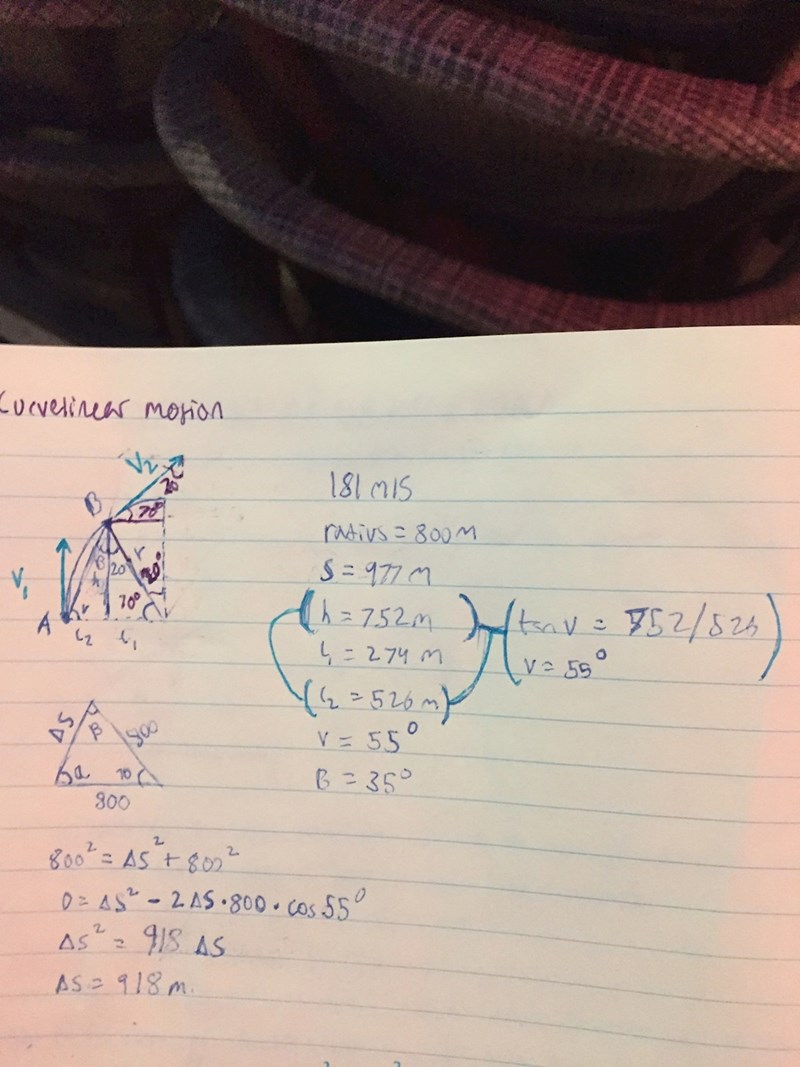 Curvelinear motion
V2
20
B
70°
V1
B
h
20
r
20°
70°
A
v
L2
L1
181 m/s
radius = 800 m
S = 977 m
(h = 752 m)
(tan v = 752/526
L1 = 274 m
v = 55°)
(L2 = 526 m)
v = 55°
B = 35°
ΔS
B
800
a
70
800
800² = ΔS² + 800²
0 = ΔS² - 2ΔS·800·cos 55°
ΔS² = 918 ΔS
ΔS = 918 m.